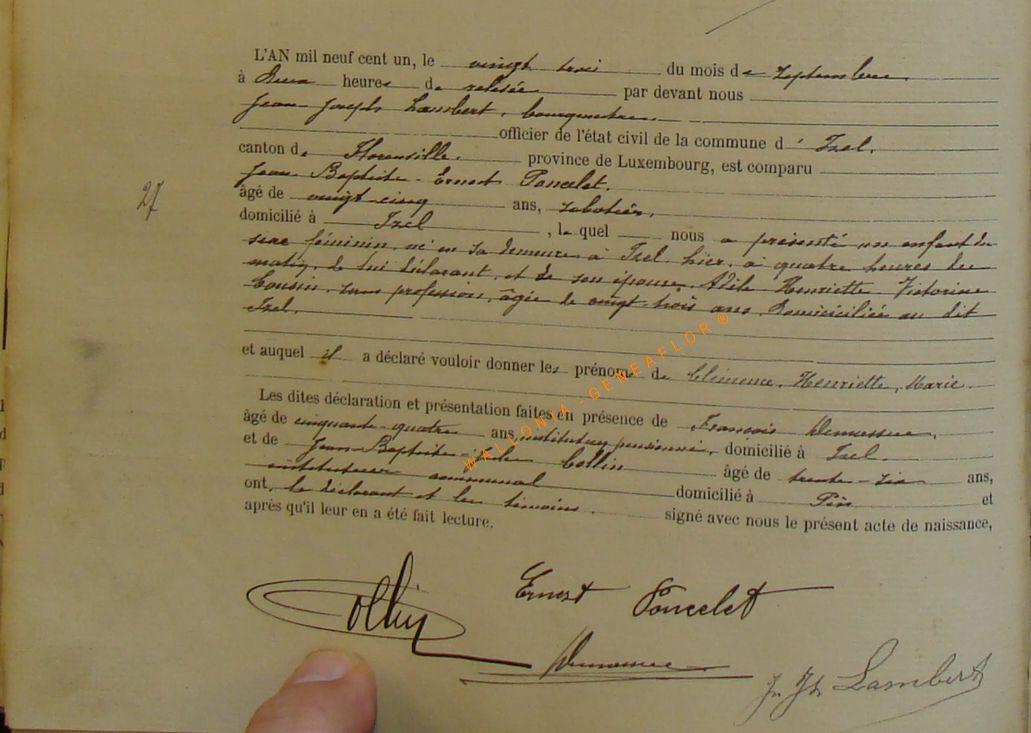 L'AN mil neuf cent un, le vingt trois du mois de septembre.
à deux heures de relevée par devant nous
Jean Joseph Lambert, bourgmestre.
officier de l'état civil de la commune d' Izel.
canton de Florenville. province de Luxembourg, est comparu
Jean Baptiste Ernest Poncelet.
âgé de vingt-cinq ans, sabotier,
domicilié à Izel, le quel nous a présenté un enfant du
sexe féminin, né en sa demeure à Izel hier, à quatre heures du
matin, de lui déclarant, et de son épouse, Adile Henriette Victorine
Cousin, sans profession, âgée de vingt-trois ans, domiciliée au dit
Izel.
27
et auquel il a déclaré vouloir donner les prénoms de Clémence, Henriette, Marie.
Les dites déclaration et présentation faites en présence de François
âgé de cinquante-quatre ans, instituteur pensionné, domicilié à Izel.
et de Jean-Baptiste Collin âgé de trente-six ans,
instituteur communal domicilié à Pin et
ont, le déclarant et les témoins. signé avec nous le présent acte de naissance,
après qu'il leur en a été fait lecture.
WALLONIA - GENEAFLOR ®
Collin
Ernest Poncelet
Jn Jh Lambert